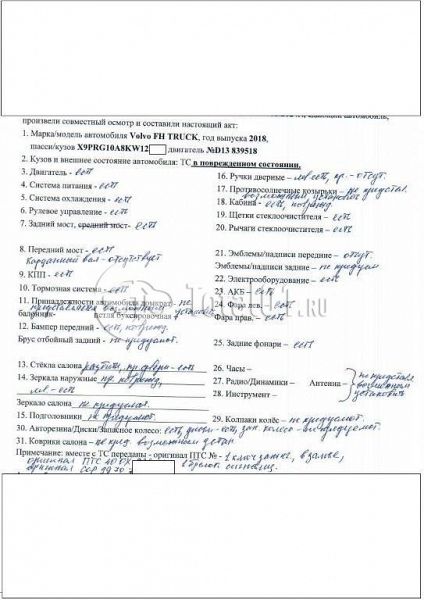 произвели совместный осмотр и составили настоящий акт:
1. Марка/модель автомобиля Volvo FH TRUCK, год выпуска 2018,
шасси/кузов X9PRG10A8KW12 двигатель №D13 839518
2. Кузов и внешнее состояние автомобиля: ТС в поврежденном состоянии,
3. Двигатель - есть
4. Система питания - есть
5. Система охлаждения - есть
6. Рулевое управление - есть
7. Задний мост, средний мост- есть
8. Передний мост - есть
Карданный вал - отсутствует
9. КПП - есть
10. Тормозная система - есть
11. Принадлежности автомобиля домкрат- не
представляется возможным установить
балонник- петля буксировочная
12. Бампер передний - есть, поврежд.
Брус отбойный задний - не предусмот.
13. Стёкла салона разбиты, пр. двери - есть
14. Зеркала наружные пр. поврежд,
лев - есть
Зеркало салона - не предусмот.
15. Подголовники не предусмот.
16. Ручки дверные - лев есть, пр. - отсут.
17. Противосолнечные козырьки - не представ.
возможным установить
18. Кабина - есть, поврежд
19. Щетки стеклоочистителя - есть
20. Рычаги стеклоочистителя - есть
21. Эмблемы/надписи передние - отсут.
Эмблемы/надписи задние - не предусм
22. Электрооборудование - есть
23. АКБ - есть
24. Фара лев. - есть
Фара прав. - есть
25. Задние фонари - есть
26. Часы -
27. Радио/Динамики - Антенна - не представ
возможным
установить
28. Инструмент -
29. Колпаки колёс - не предусмот.
30. Авторезина/Диски/Запасное колесо: есть, диски - есть, зап. колесо - не предусмот.
31. Коврики салона - не пред. возможным устан
Примечание: вместе с ТС переданы - оригинал ПТС № - 1 ключ зажиг. в замке,
оригинал ПТС
оригинал СОР 99 70
TOTAL01.RU